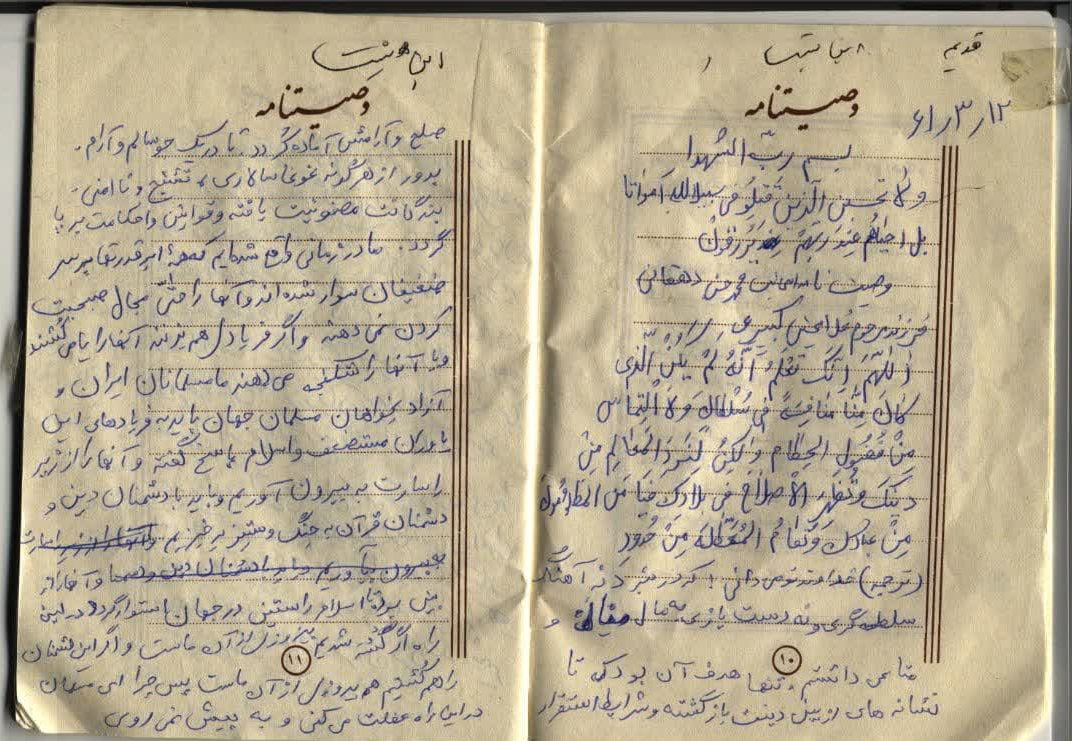 قدیم
۶۱/۳/۱۲
وصیتنامه
بسم ربّ الشهدا
ولا تحسبن الذین قتلو فی سبیل الله امواتا
بل احیاهم عند ربهم یرزقون
وصیت نامه دهقانی
فرزند مرحوم
اللهم انک تعلم انّه لم یکن الذی
کان منّا منافسة فی سلطان ولا التماس
من فضول الحطام ولکن لنرد المعالم من
دینک و نظهر الاصلاح فی بلادک فیأمن المظلومون
من عبادک و تقام المعطلة من حدود
(ترجمه) خداوندا تو می دانی که در نبرد نه آهنگ
سلطه گری و نه دست یازی به مال و
متاعی داشتم، تنها هدف آن بود که تا
نشانه های از بین دینت بازگشته و شرایط استقرار
۱۰
امنیت
وصیتنامه
صلح و آرامش آماده گردد. تا در یک جو سالم و آرام،
بدور از هرگونه غوغا سالاری، تشنج و ناامنی،
بندگانت مصونیت یافته و قوانین و احکامت برپا
گردد. ما در زمانی واقع شده ایم که همۀ ابرقدرتها بر سر
ضعیفان سوار شده اند و آنها را حتّی مجال صحبت
کردن نمی دهند و اگر فریاد دل هم بزنند آنها را یا می کشند
و یا آنها را شکنجه می دهند ما مسلمانان ایران و
آزادیخواهان مسلمان جهان باید به فریادهای این
یاوران مستضعف و اسلام پاسخ گفته و آنها را از زیر
اسارت به بیرون آوریم و باید با دشمنان دین و
دشمنان قرآن به جنگ و ستیز برخیزیم
بیرون بیاوریم و باید با دشمنان دین و آنها را از
بین برد تا اسلام راستین در جهان استوار گردد در این
راه اگر کشته شدیم پیروزی از آن ماست و اگر این دشمنان
را هم کشتیم هم پیروزی از آن ماست پس چرا ای مسلمان
در این راه غفلت می کنی و به پیش نمی روی
۱۱